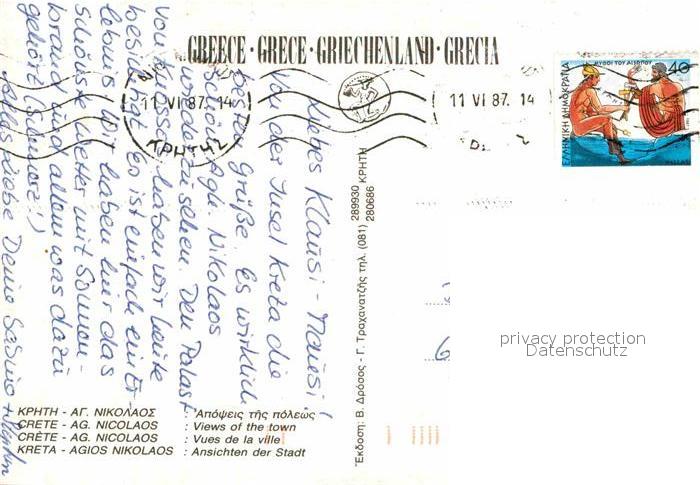 GREECE · GRECE · GRIECHENLAND · GRECIA
11 VI 87. 14
11 VI 87. 14
ΕΛΛΗΝΙΚΗ ΔΗΜΟΚΡΑΤΙΑ
ΜΥΘΟΙ ΤΟΥ ΑΙΣΩΠΟΥ
40
HELLAS
Liebes Klausi-Mausi!
Von der Insel Kreta die
besten Grüße. Es wirklich
schön Agh. Nikolaos
wieder zu sehen. Den Palast
von Knossos haben wir heute
besichtigt. Es ist einfach ein Er-
lebnis. Wir haben hier das
schönste Wetter mit Sonnen-
brand und allem was dazu
gehört (Schmerz!)
Alles Liebe Deine Sabine +
ΚΡΗΤΗ - ΑΓ. ΝΙΚΟΛΑΟΣ : Ἀπόψεις τῆς πόλεως
CRETE - AG. NICOLAOS : Views of the town
CRÈTE - AG. NICOLAOS : Vues de la ville
KRETA - AGIOS NIKOLAOS : Ansichten der Stadt
Ἔκδοση: Β. Δρόσος - Γ. Τραχανατζής τηλ. (081) 289930 280686 ΚΡΗΤΗ
privacy protection
Datenschutz